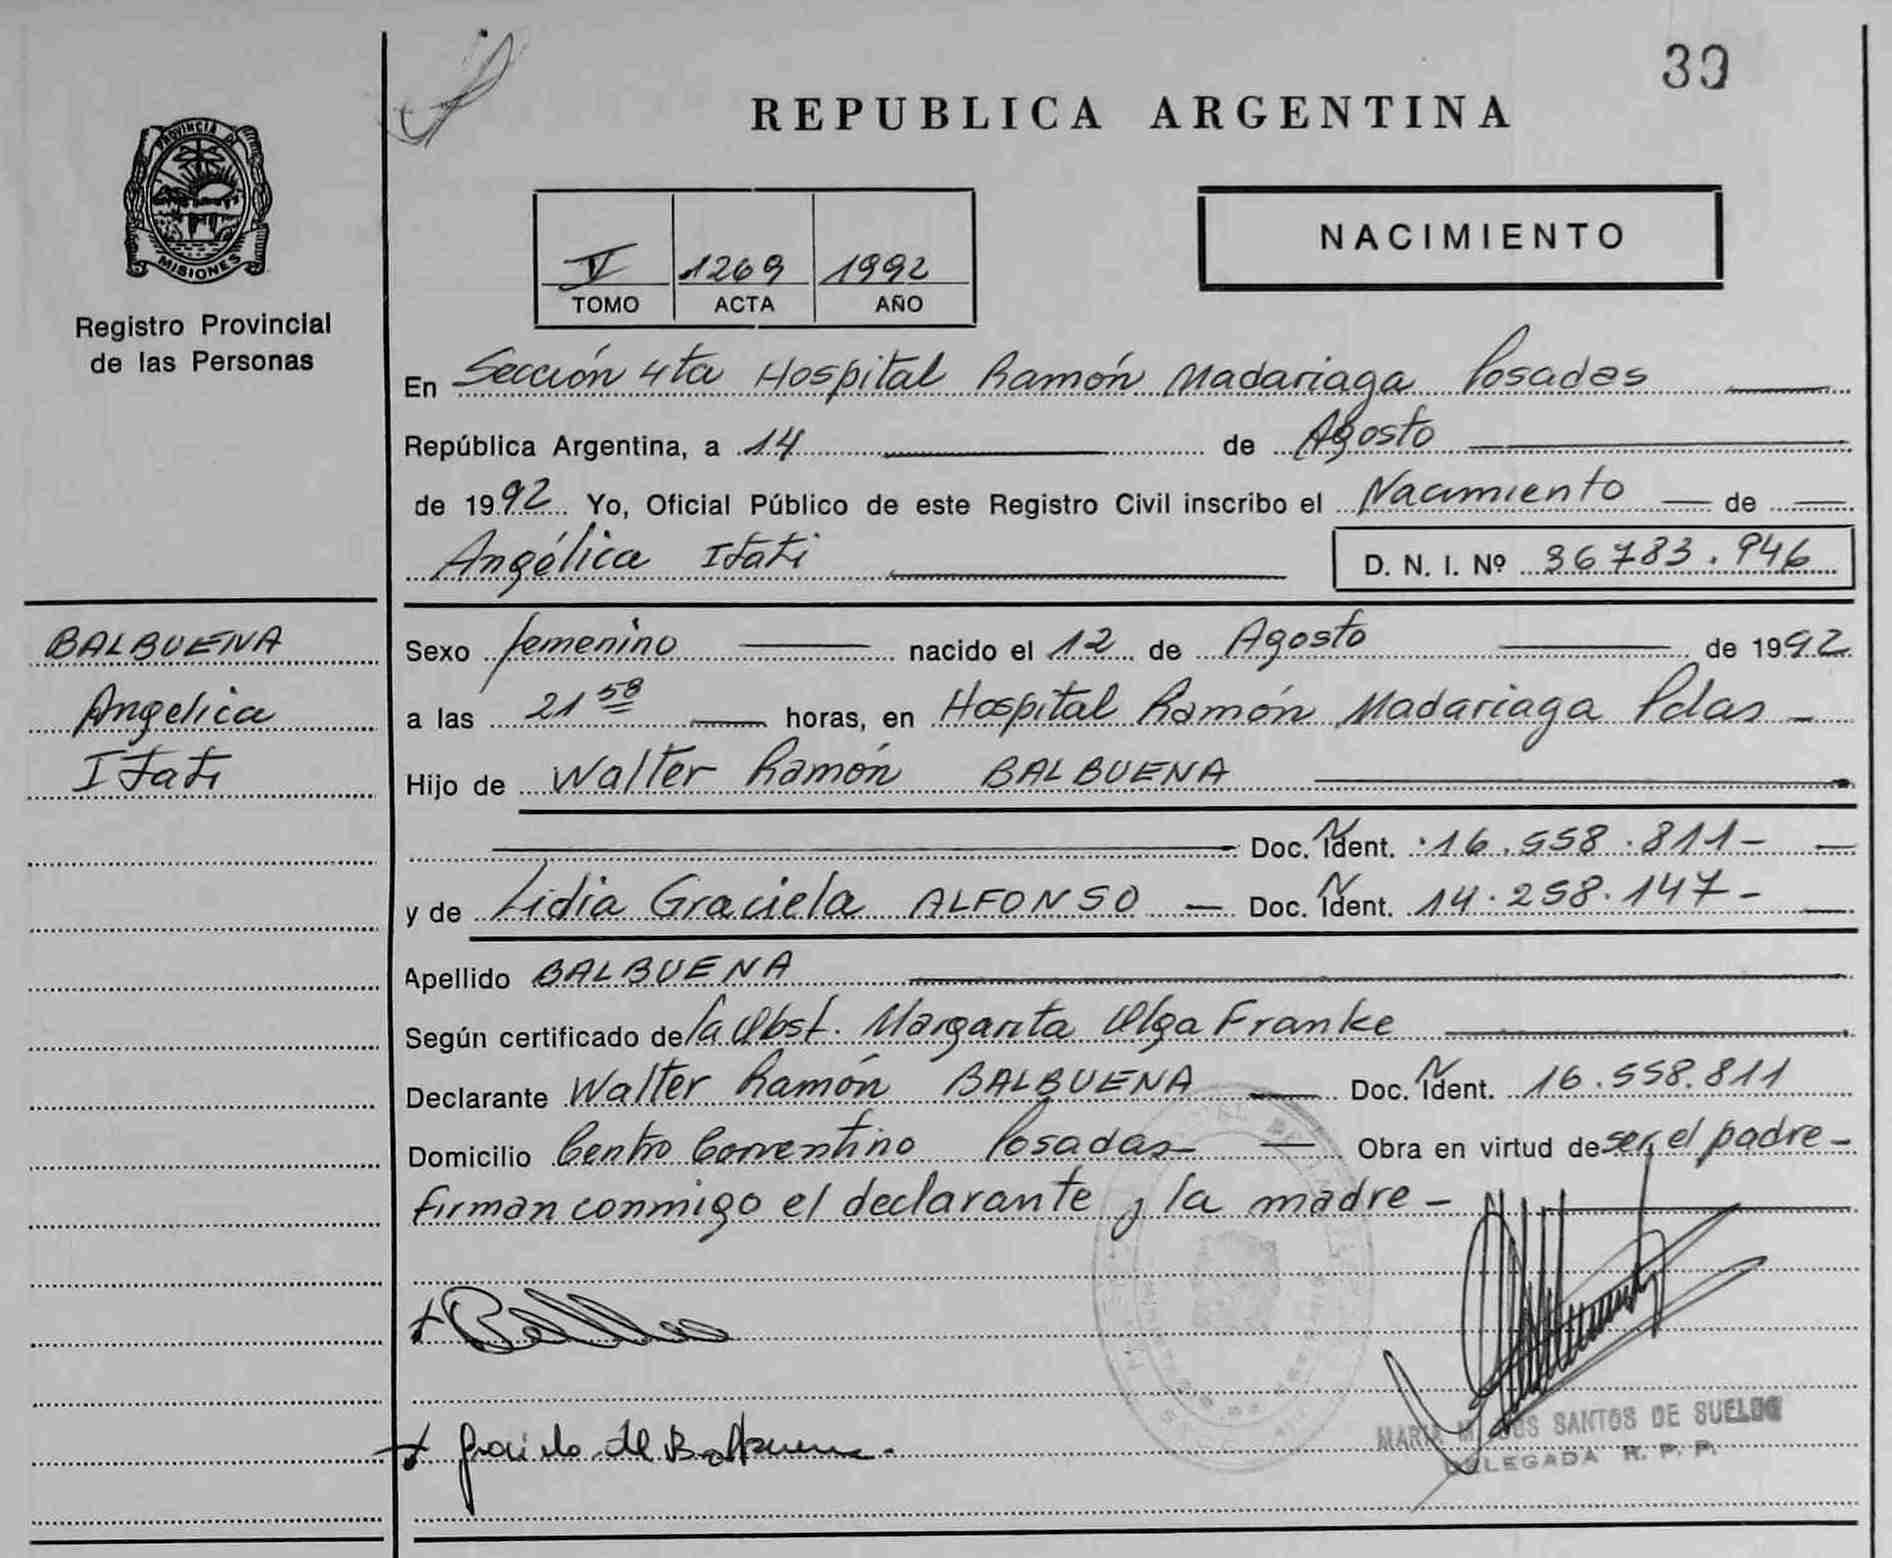 30
REPUBLICA ARGENTINA
PROVINCIA DE
MISIONES
Registro Provincial
de las Personas
V 1269 1992
TOMO ACTA AÑO
NACIMIENTO
En Sección 4ta Hospital Ramón Madariaga Posadas
República Argentina, a 14 de Agosto
de 1992 Yo, Oficial Público de este Registro Civil inscribo el Nacimiento — de —
Angélica Itati D. N. I. Nº 36783.946
BALBUENA
Angelica
Itati
Sexo femenino nacido el 12 de Agosto de 1992
a las 21 58 horas, en Hospital Ramón Madariaga Pdas –
Hijo de Walter Ramón BALBUENA
Doc. N Ident. 16.558.811 –
y de Lidia Graciela ALFONSO — Doc. N Ident. 14.258.147 –
Apellido BALBUENA
Según certificado de la Obst. Margarita Olga Franke
Declarante Walter Ramón BALBUENA Doc. N Ident. 16.558.811
Domicilio Centro Correntino Posadas — Obra en virtud de ser el padre –
firman conmigo el declarante y la madre –
SANTOS DE SUELDO
DELEGADA R. P. P.